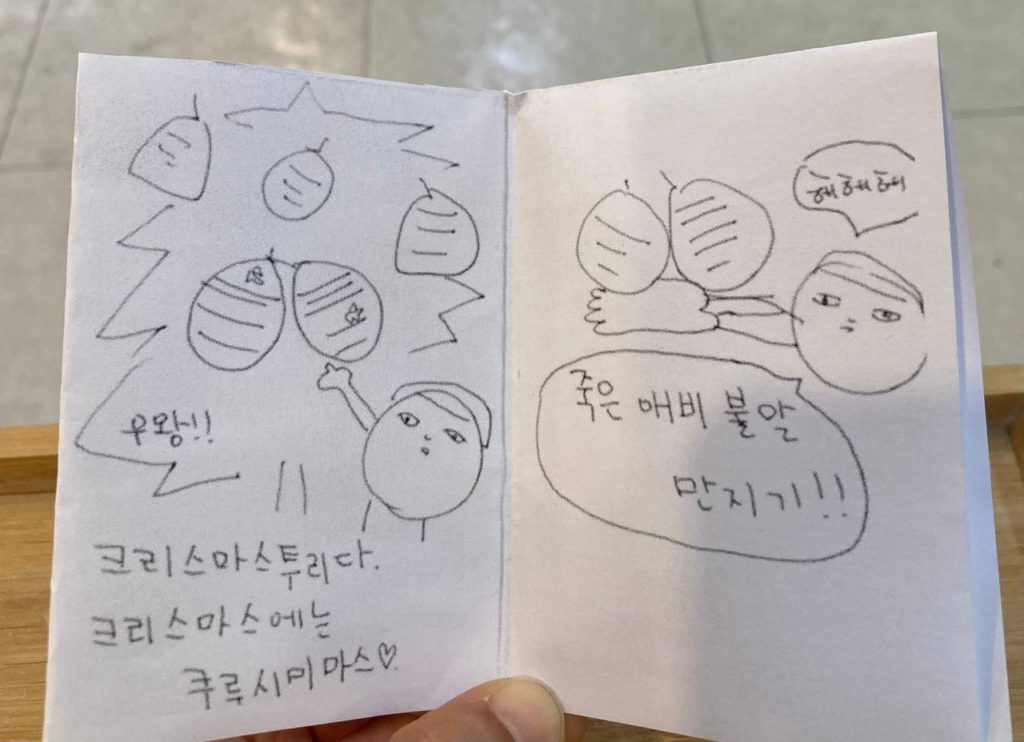 우왕!!
크리스마스투리다.
크리스마스에는
쿠루시미마스♡
헤헤헤
죽은 애비 불알
만지기!!